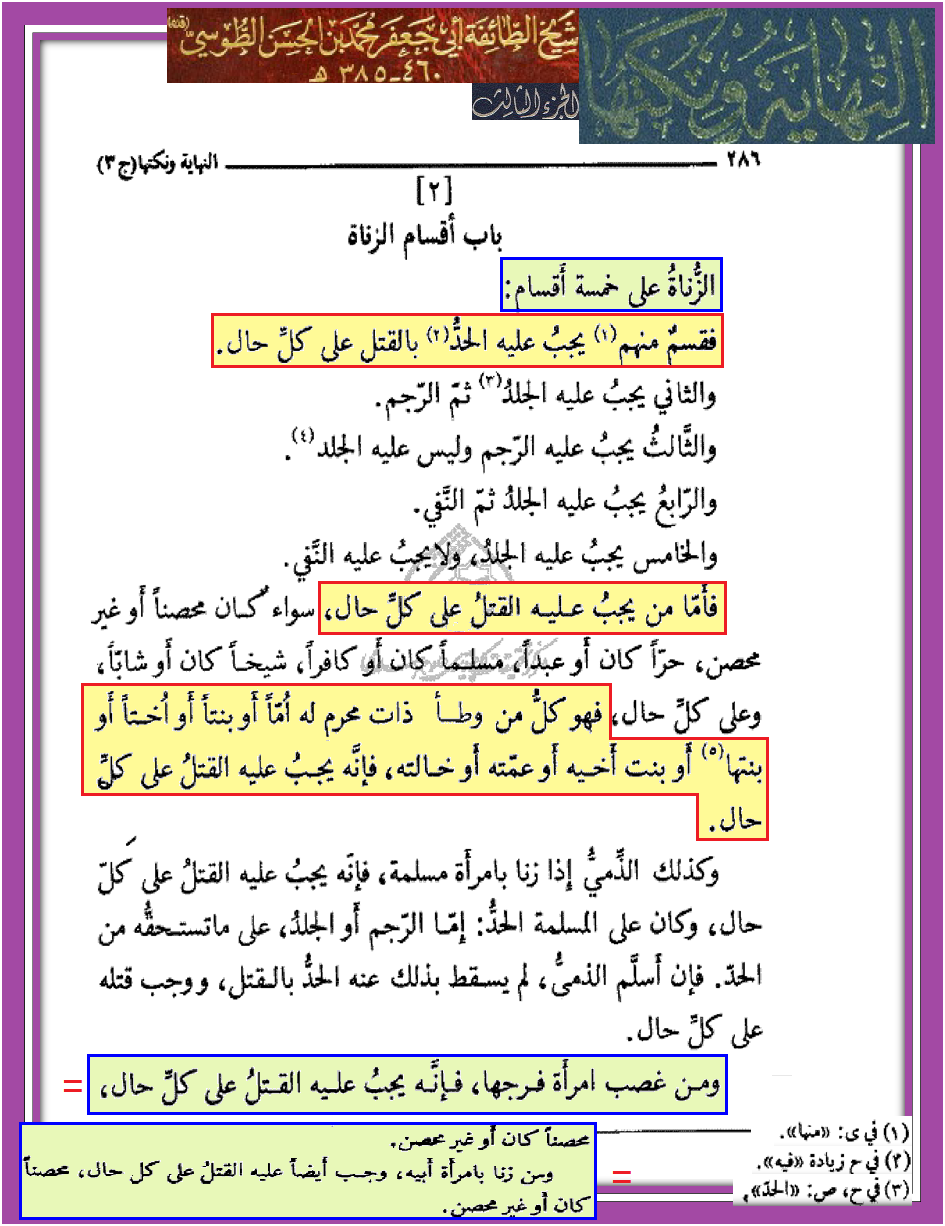 شيخ الطائفة أبي جعفر محمد بن الحسن الطوسي (قده)
٣٨٥-٤٦٠ هـ
النهاية ونكتها
الجزء الثالث
٢٨٦ النهاية ونكتها (ج ٣)
[٢]
باب أقسام الزناة
الزُّناةُ على خمسة أقسام:
فقسمٌ منهم(١) يجبُ عليه الحدُّ(٢) بالقتل على كلِّ حال.
والثاني يجبُ عليه الجلدُ(٣) ثمّ الرّجم.
والثَّالثُ يجبُ عليه الرّجم وليس عليه الجلد(٤).
والرّابعُ يجبُ عليه الجلدُ ثمّ النَّفي.
والخامس يجبُ عليه الجلدُ، ولايجبُ عليه النَّفي.
فأمّا من يجبُ عليه القتلُ على كلِّ حال، سواء كان محصناً أو غير
محصن، حرّاً كان أو عبداً، مسلماً كان أو كافراً، شيخاً كان أو شابّاً،
وعلى كلِّ حال، فهو كلُّ من وطأ ذات محرم له أمّاً أو بنتاً أو أختاً أو
بنتها(٥) أو بنت أخيه أو عمّته أو خالته، فإنَّه يجبُ عليه القتلُ على كلِّ
حال.
وكذلك الذِّميُّ إذا زنا بامرأة مسلمة، فإنَّه يجبُ عليه القتلُ على كلّ
حال، وكان على المسلمة الحدُّ: إمّا الرّجم أو الجلدُ، على ماتستحقُّه من
الحدّ. فإن أسلّم الذميُّ، لم يسقط بذلك عنه الحدُّ بالقتل، ووجب قتله
على كلِّ حال.
ومن غصب امرأة فرجها، فإنَّه يجبُ عليه القتلُ على كلِّ حال، =
محصناً كان أو غير محصن.
ومن زنا بامرأة أبيه، وجب أيضاً عليه القتلُ على كل حال، محصناً =
كان أو غير محصن.
(١) في ى: «منها».
(٢) في ح زيادة «فيه».
(٣) في ح، ص: «الحدّ».